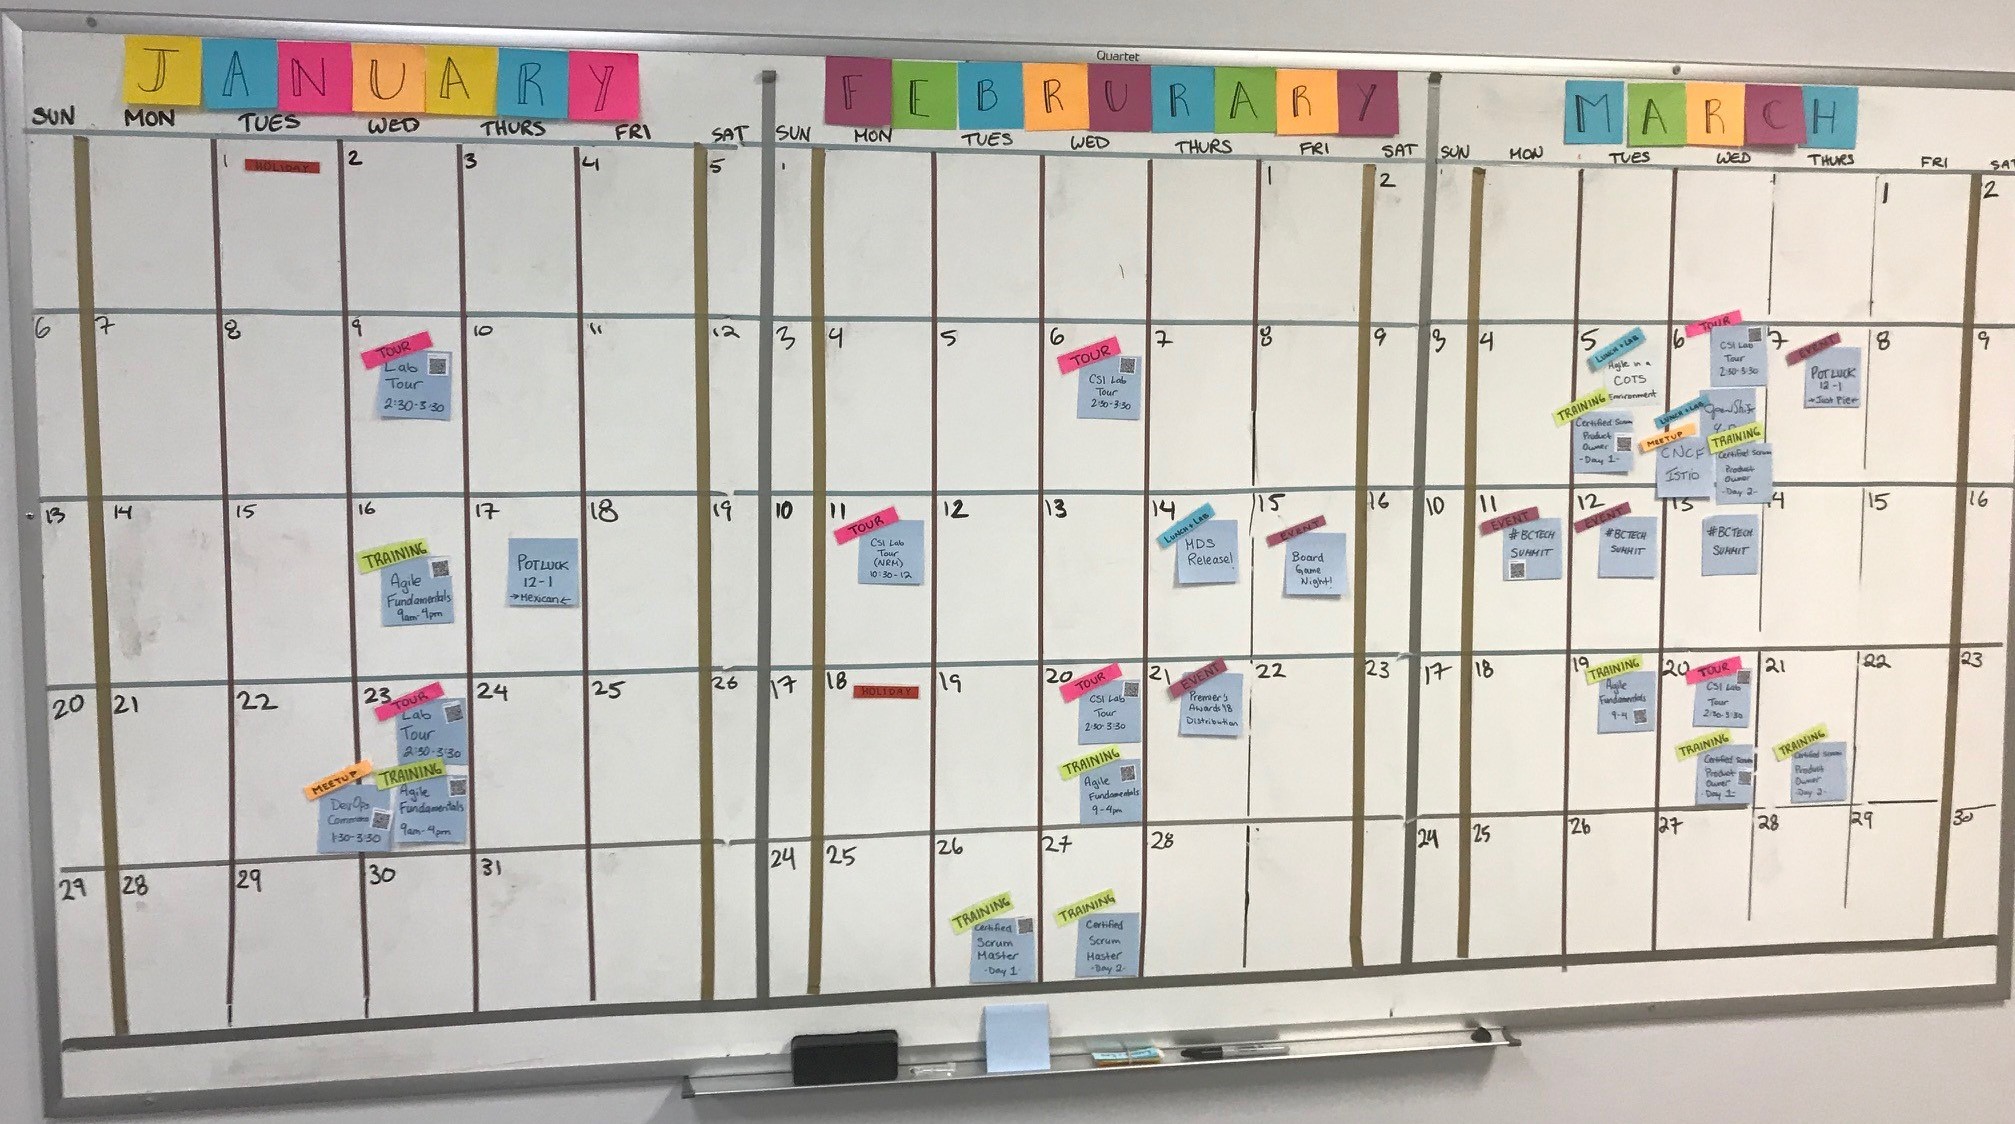 Quartet
JANUARY
SUN MON TUES WED THURS FRI SAT
1 HOLIDAY 2 3 4 5
6 7 8 9 10 11 12
TOUR
Lab
Tour
2:30-3:30
13 14 15 16 17 18 19
TRAINING
Agile
Fundamentals
9am-4pm
POTLUCK
12-1
→Mexican←
20 21 22 23 24 25 26
TOUR
Lab
Tour
2:30-3:30
MEETUP
DevOps
1:30-3:30
TRAINING
Agile
Fundamentals
9am-4pm
29 28 29 30 31
FEBRURARY
SUN MON TUES WED THURS FRI SAT
1 2
3 4 5 6 7 8 9
TOUR
CSI Lab
Tour
2:30-3:30
10 11 12 13 14 15 16
TOUR
CSI Lab
Tour
(NRM)
10:30-12
LUNCH + LAB
MDS
Release!
EVENT
Board
Game
Night!
17 18 HOLIDAY 19 20 21 22 23
TOUR
CSI Lab
Tour
2:30-3:30
TRAINING
Agile
Fundamentals
9-4pm
EVENT
Premier's
Awards '18
Distribution
24 25 26 27 28
TRAINING
Certified
Scrum
Master
-Day 1-
TRAINING
Certified
Scrum
Master
-Day 2-
MARCH
SUN MON TUES WED THURS FRI SAT
1 2
3 4 5 6 7 8 9
LUNCH + LAB
Agile in a
COTS
Environment
TRAINING
Certified Scrum
Product
Owner
-Day 1-
TOUR
CSI Lab
Tour
2:30-3:30
LUNCH + LAB
OpenShift
MEETUP
CNCF
ISTIO
TRAINING
Certified Scrum
Product
Owner
-Day 2-
EVENT
POTLUCK
12-1
→Just Pie←
10 11 12 13 14 15 16
EVENT
#BCTECH
SUMMIT
EVENT
#BCTECH
SUMMIT
#BCTECH
SUMMIT
17 18 19 20 21 22 23
TRAINING
Agile
Fundamentals
9-4
TOUR
CSI Lab
Tour
2:30-3:30
TRAINING
Certified Scrum
Product
Owner
-Day 1-
TRAINING
Certified Scrum
Product
Owner
-Day 2-
24 25 26 27 28 29 30